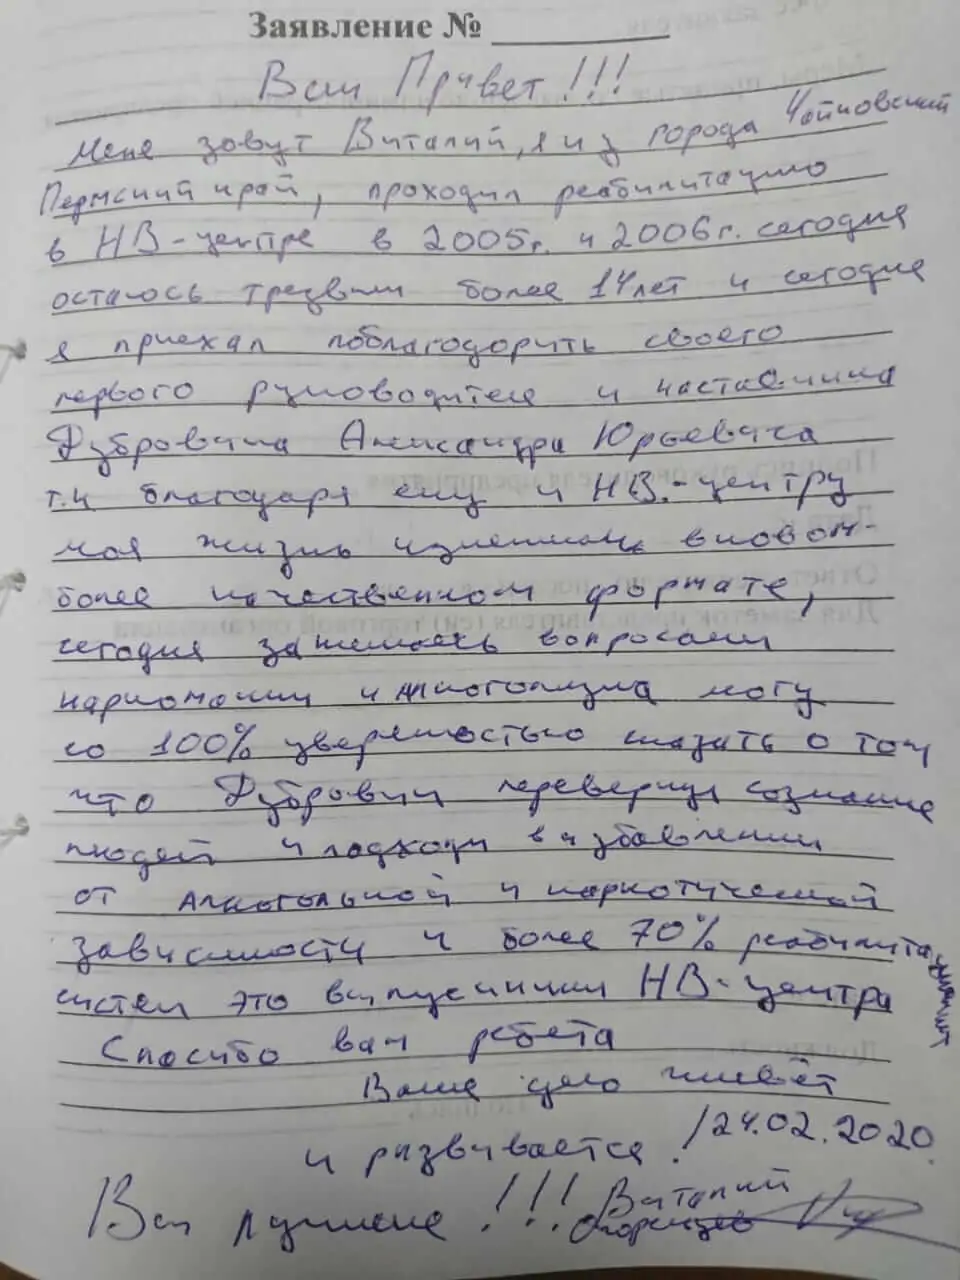 Заявление №
Всем Привет!!!
Меня зовут Виталий, я из города Чайковский
Пермский край, проходил реабилитацию
в НВ-центре в 2005г. и 2006г. сегодня
остаюсь трезвым более 14 лет и сегодня
я приехал поблагодорить своего
первого руководителя и наставника
Дубровина Александра Юрьевича
т.к благодаря ему и НВ.-центру
моя жизнь в новом-
более качественном формате,
сегодня занимаясь вопросами
наркомании и алкоголизма могу
со 100% уверенностью сказать о том
что Дубровин перевернул сознание
людей и подходы в избавлении
от алкогольной и наркотической
зависимости и более 70% реабилитационных
систем это выпускники НВ-центра
Спосибо вам ребята
Ваше дело живёт
и развивается! /24.02.2020.
Вы лучшие!!! Виталий